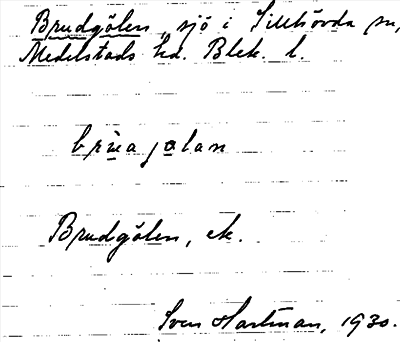 Brudgölen, sjö i Sillhövda sn,
Medelstads hd. Blek. l.
brùa jølan
Brudgölen, ek.
Sven Hartman, 1930.